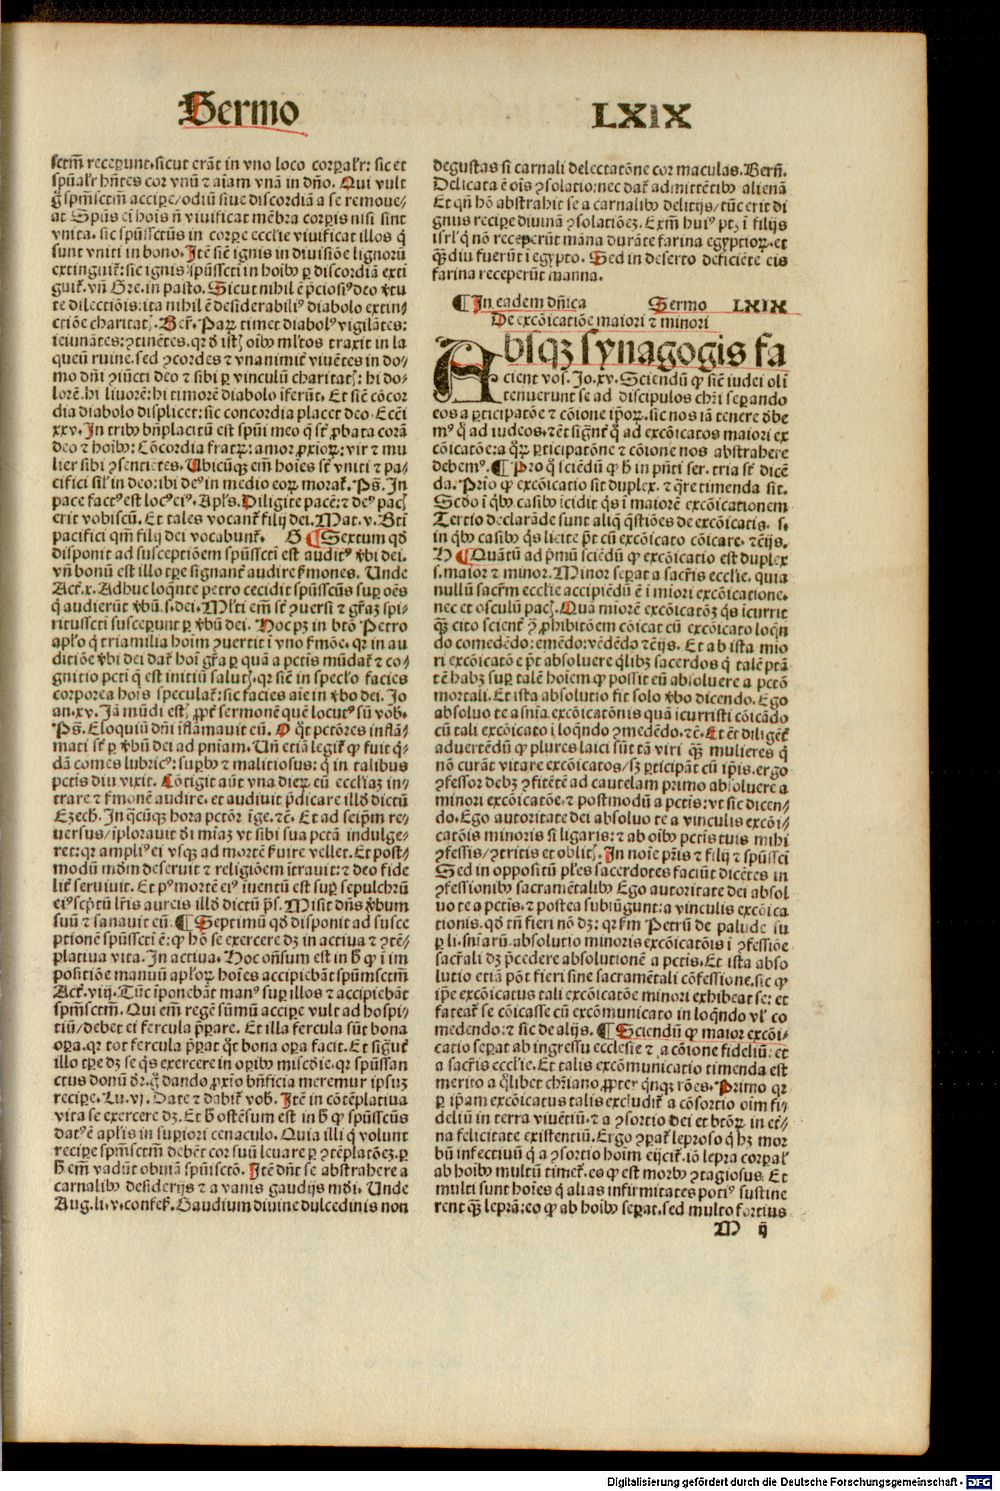 Sermo LXIX
sctm̄ receperunt. sicut erāt in vno loco corꝑaľr: sic et
spūaľr hn̄tes cor vnū ⁊ aīam vnā in dn̄o. Qui vult
g̊ spm̄sctm̄ accipe/odiū siue discordiā a se remoue/
at Spūs em̄ hoīs n̄ viuificat mēbra corꝑis nisi sint
vnita. sic spūssctūs in corꝑe ecclie viuificat illos q̄
sunt vniti in bono. Itē sic̄ ignis in diuisiōe lignorū
extinguit̄: sic ignis spūsscti in hoībꝰ ꝑ discordiā exti
guit̄. vn̄ Gre. in pasto. Sicut nihil ē p̄ciosiꝰ deo v̄tu
te dilectiōis: ita nihil ē desiderabiliꝰ diabolo extin/
ctiōe charitatꝭ. Ber̄. Paꝝ timet diabolꝰ vigilātes:
ieiunātes: ꝯtinētes. qꝛ d̄ istꝭ oībꝰ ml̄tos traxit in la
queū ruine. sed ꝯcordes ⁊ vnanimit̄ viuētes in do/
mo dn̄i ꝯiūcti deo ⁊ sibi ꝑ vinculū charitatꝭ: hi do/
lorē. hi liuorē: hi timorē diabolo īferūt. Et sic̄ cōcor
dia diabolo displicet: sic concordia placet deo. Ecci̇
xxv. In tribꝰ bn̄placitū est spūi meo q̄ st̄ ꝓbata corā
deo ⁊ hoībꝰ: Cōcordia fratꝝ: amor ꝓxioꝝ: vir ⁊ mu
lier sibi ꝯsentiētes. Ubicūqꝫ em̄ hoīes st̄ vniti ⁊ pa/
cifici sil̄ in deo: ibi deꝰ in medio eoꝝ morat̄. Ps̄. In
pace factꝰ est locꝰ eiꝰ. Apl̄s. Diligite pacē: ⁊ deꝰ pacꝭ
erit vobiscū. Et tales vocant̄ filij dei. Mat. v. Bt̄i
pacifici qm̄ filij dei vocabunt̄. G ¶ Sextum qd̄
disponit ad susceptiōem spūsscti est auditꝰ v̄bi dei.
vn̄ bonū est illo tꝑe signant̄ audire s̄mones. Unde
Act̄. x. Adhuc loq̄nte petro cecidit spūsscūs suꝑ oēs
q̄ audierūt v̄bū .s. dei. Ml̄ti em̄ st̄ ꝯuersi ⁊ gr̄az spi/
ritussctī susceperunt ꝑ v̄bū dei. Hoc pꝫ in bt̄o Petro
apl̄o q̄ tria milia hoīm ꝯuertit ī vno s̄mōe. qꝛ in au
ditiōe v̄bi dei dat̄ hoī gr̄a ꝑ quā a pctis mūdat̄ ⁊ co/
gnitio pcti q̄ est initiū salutꝭ. qꝛ sic̄ in speclo facies
corporea hoīs speculat̄: sic facies aīe in v̄bo dei. Jo
an. xv. Jā mūdi estꝭ ꝓpt̄ sermonē quē locutꝰ sū vob̄.
Ps̄. Eloquiū dn̄i īflamauit eū. O qt̄ pctōres inflā/
mati st̄ ꝑ v̄bū dei ad pn̄iam. Un̄ etiā legit̄ ꝙ fuit q̄/
dā comes lubricꝰ: suꝑbꝰ ⁊ malitiosus: q̄ in talibus
pctis diu vixit. Cōtigit aūt vna dieꝝ eū eccliaz in/
trare ⁊ s̄monē audire. et audiuit p̄dicare illd̄ dictū
Ezech̄. In q̄cūqꝫ hora pctōr īge. ⁊ē. Et ad seip̄m re/
uersus/īplorauit d̄i miāz vt sibi sua pctā indulge/
ret: qꝛ ampliꝰ ei vsqꝫ ad mortē s̄uire vellet. Et post/
modū mōm deseruit ⁊ religiōem ītrauit: ⁊ deo fide
lit̄ seruiuit. Et pꝰ mortē eiꝰ iuentū est suꝑ sepulchrū
eiꝰ scp̄tū lr̄is aureis illd̄ dictū ps̄. Misit dn̄s v̄bum
suū ⁊ sanauit eū. ¶ Septimū qd̄ disponit ad susce
ptionē spūsscti ē: ꝙ hō se exercere dꝫ in actiua ⁊ ꝯtē/
platiua vita. In actiua. Hoc on̄sum est in h̄ ꝙ ī im
positiōe manuū apl̄oꝝ hoīes accipiebāt spūmsctm̄
Act̄. viij. Tūc īponebāt manꝰ suꝑ illos ⁊ accipiebāt
spm̄sctm̄. Qui em̄ regē sūmū accipe vult ad hospi/
tiū/debet ei fercula p̄ꝑare. Et illa fercula sūt bona
oꝑa. qꝛ tot fercula p̄ꝑat qt̄ bona oꝑa facit. Et sign̄t̄
illo tꝑe dꝫ se q̄s exercere in oꝑibꝰ mis̄die. qꝛ spūssan
ctus donū dr̄. g̊ dando ꝓxio bn̄ficia meremur ipsuz
recipe. Lu. vj. Date ⁊ dabit̄ vob̄. Itē in cōtēplatiua
vita se exercere dꝫ. Et h̄ ostēsum est in h̄ ꝙ spūsscūs
datꝰ ē apl̄is in suꝑiori cenaculo. Quia illi q̄ volunt
recipe spm̄sctm̄ debēt cor suū leuare ꝑ ꝯtēplatōeꝫ. ꝑ
h̄ em̄ vadūt obuiā spūisctō. Itē dn̄t se abstrahere a
carnalibꝰ desiderijs ⁊ a vanis gaudijs mūdi. Unde
Aug. li. v. confes̄. Gaudium diuine dulcedinis non
degustas si carnali delectatōne cor maculas. Bern̄.
Delicata ē oīs ꝯsolatio: nec dat̄ admittētibꝰ alienā
Et qn̄ hō abstrahit se a carnalibꝰ delitijs/tūc erit di
gnus recipe diuinā ꝯsolatiōez. Exm̄ huiꝰ ptꝫ ī filijs
isrl̄ q̄ nō receperūt māna durāte farina egyptioꝝ. et
qꝫdiu fuerūt ī egypto. Sed in deserto deficiēte eis
farina receperūt manna.
¶ In eadem dn̄ica Sermo LXIX
De excōicatiōe maiori ⁊ minori
Absqꝫ synagogis fa
cient vos. Jo. xv. Sciendū ꝙ sic̄ iudei oli
tenuerunt se ad discipulos chr̄i seꝑando
eos a ꝑticipatōe ⁊ cōione ip̄oꝝ. sic nos iā tenere d̄be
mꝰ q̄ ad iudeos. ⁊ēt sign̄t̄ q̄ ad excōicatos maiori ex
cōicatōe: a qꝝ ꝑticipatōne ⁊ cōione nos abstrahere
debemꝰ. ¶ Pro q̊ sciēdū ꝙ h̄ in pn̄ti ser. tria st̄ dicē
da. Prīo ꝙ excōicatio sit duplex. ⁊ q̄re timenda sit.
Scd̄o ī qbꝰ casibꝰ īcidit q̄s ī maiorē excōicationem
Tertio declarāde sunt aliq̄ q̄stiōes de excōicatis. s.
in qbꝰ casibꝰ q̄s licite p̄t cū excōicato cōicare. ⁊ēijs.
H ¶ Quātū ad p̄mū sciēdū ꝙ excōicatio est duplex
s. maior ⁊ minor. Minor seꝑat a sacr̄is ecclie. quia
nullū sacr̄m ecclie accipiēdū ē ī miori excōicatione.
nec et osculū pacꝭ. Quā miorē excōicatōꝫ q̄s īcurrit
qꝫ cito scient̄ ꝯ ꝓhibitōem cōicat cū excōicato loqn̄
do comedēdo: emēdo: vēdēdo ⁊ēijs. Et ab ista mio
ri excōicatōe p̄t absoluere q̄libꝫ sacerdos q̄ talē ptā
tē habꝫ suꝑ talē hoīem ꝙ possit eū absoluere a pctō
mortali. Et ista absolutio fit solo v̄bo dicendo. Ego
absoluo te a snīa excōicatōnis quā īcurristi cōicādo
cū tali excōicato ī loqn̄do ꝯmedēdo. ⁊ē. Et ēt diligēt̄
aduertēdū ꝙ plures laici sūt tā viri qꝫ mulieres q̄
nō curāt vitare excōicatos/sꝫ ꝑticipāt cū ip̄is. ergo
ꝯfessor debꝫ ꝯfitētē ad cautelam primo absoluere a
minori excōicatōe. ⁊ postmodū a pctis: vt sic dicen/
do. Ego autoritate dei absoluo te a vinculis excōi/
catōis minoris si ligaris: ⁊ ab oībꝰ pctis tuis mihi
ꝯfessis/ꝯtritis et oblitꝭ. In noīe pr̄is ⁊ filij ⁊ spūssci
Sed in oppositū pl̄es sacerdotes faciūt dicētes in
ꝯfessionibꝰ sacramētalibꝰ Ego autoritate dei absol
uo te a pctis. ⁊ postea subiūgunt: a vinculis excōica
tionis. qd̄ tn̄ fieri nō dꝫ: qꝛ s̄m Petrū de palude su
ꝑ li. sniarū absolutio minoris excōicatōis ī ꝯfessiōe
sacr̄ali dꝫ p̄cedere absolutionē a pctis. Et ista abso
lutio etiā pōt fieri sine sacramētali cōfessione. sic ꝙ
ip̄e excōicatus tali excōicatōe minori exhibeat se: et
fateat̄ se cōicasse cū excōmunicato in loqn̄do vl̄ co
medendo: ⁊ sic de alijs. ¶ Sciendū ꝙ maior excōi/
catio seꝑat ab ingressu ecclesie ⁊ a cōione fideliū: et
a sacr̄is ecclie. Et talis excōmunicatio timenda est
merito a q̄libet chr̄iano ꝓpter qnqꝫ rōes. Primo qꝛ
ꝑ ip̄am excōicatus talis excludit̄ a cōsortio oīm fi/
deliū in terra viuētiū. ⁊ a ꝯsortio dei et btōꝝ in et̄/
na felicitate existentiū. Ergo ꝯꝑat̄ leproso q̄ hꝫ mor
bū infectiuū q̄ a ꝯsortio hoīm eijcit̄. iō lepra corꝑal̄
ab hoībꝰ multū timet̄. eo ꝙ est morbꝰ ꝯtagiosus. Et
multi sunt hoīes q̄ alias infirmitates potiꝰ sustine
rent qꝫ leprā: eo ꝙ ab hoībꝰ seꝑat. sed multo fortius
M ij
Digitalisierung gefördert durch die Deutsche Forschungsgemeinschaft - DFG